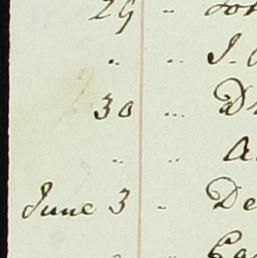 29 ..
.. .. J.
30 ...
.. .. A
June 3 .. De